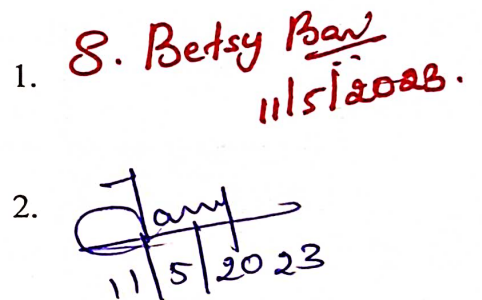 1. S. Betsy Bav
11/5/2023.
2. Jany
11/5/2023